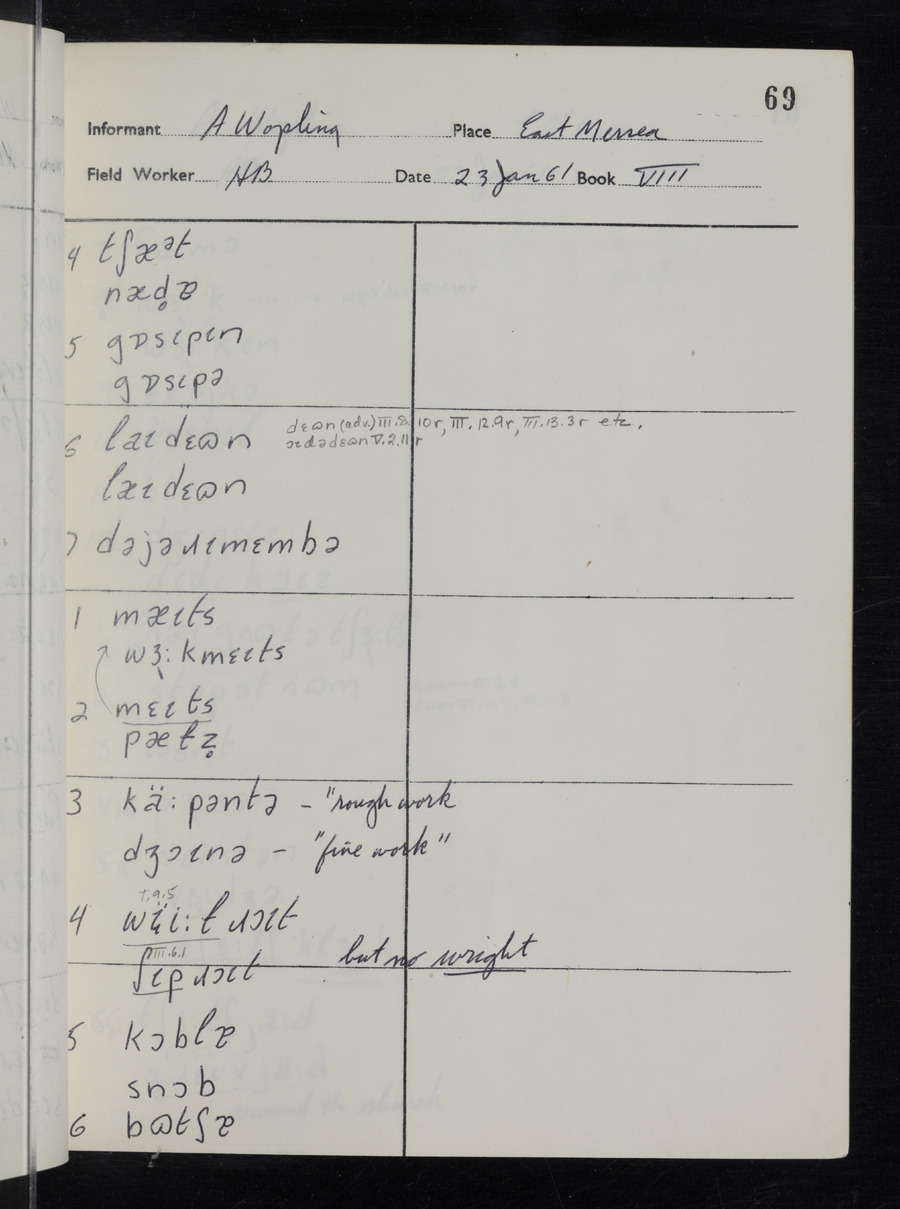 69
Informant A Wopling Place East Mersea
Field Worker HB Date 23 Jan 61 Book VIII
4 tʃæᵊt
næd̥ɐ
5 gɒsɩpɩn
gɒsɩpə
6 læɩ dɛɷn dɛɷn (adv.) III.2.10r, III.12.9r, III.13.3r etc.
ɔɩdədɛɷn V.2.11r
læɩ dɛɷn
7 dəjəɹɩmɛmbə
1 mæɩts
wɜ:kmɛɩts
2 mɛɩts
pætz̥
3 kä:pəntə – "rough work
dʒɔɩnə – "fine work"
4 ɹɔɩt
III.6.1
ʃɩpɹɔɩt but no wright
5 kɔblɐ
snɔb
6 bɷtʃɐ